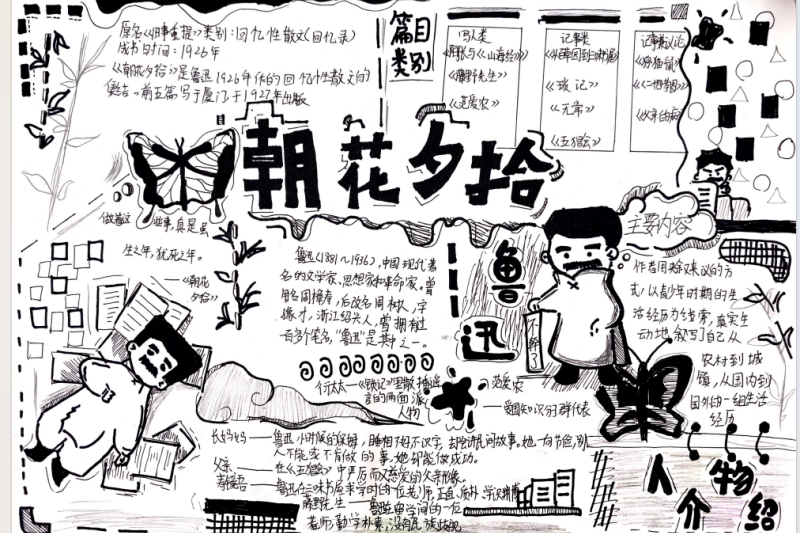 原名《旧事重提》类别:回忆性散文(回忆录)
成书时间:1926年
《朝花夕拾》是鲁迅1926年作的回忆性散文的
集.前五篇写于厦门,于1927年出版
篇目
类别
写人类
《阿长与《山海经》》
《藤野先生》
《范爱农》
记事类
《琐记》
《无常》
《五猖会》
《父亲的病》
朝花夕拾
做着这些事,真是虽
生之年,犹死之年.
——《朝花
夕拾》
鲁迅(1881~1936),中国现代著
名的文学家、思想家和革命家.曾
用名周樟寿,后改名周树人,字
豫才,浙江绍兴人,曾拥有过
一百多个笔名,"鲁迅"是其中之一.
鲁
迅
不干了
主要内容
作者用
式,以青少年时期的生
活经历为线索,真实生
动地叙写了自己从
农村到城
镇,从国内到
国外的一组生活
经历
衍太太——《琐记》里
的两面派
人物
范爱农
——受困知识分子群代表
长妈妈——鲁迅小时候的保姆,睡相不好不识字,
人不能或不肯做的事,她却能做成功.
父亲——在《五猖会》中严厉而又慈爱的父亲形象.
寿镜吾——鲁迅在三味书屋求学时的一位老师,正直、质朴、学识渊博
藤野先生——鲁迅留学间的一位
老师,勤学朴素,没有民族歧视
人物
介绍